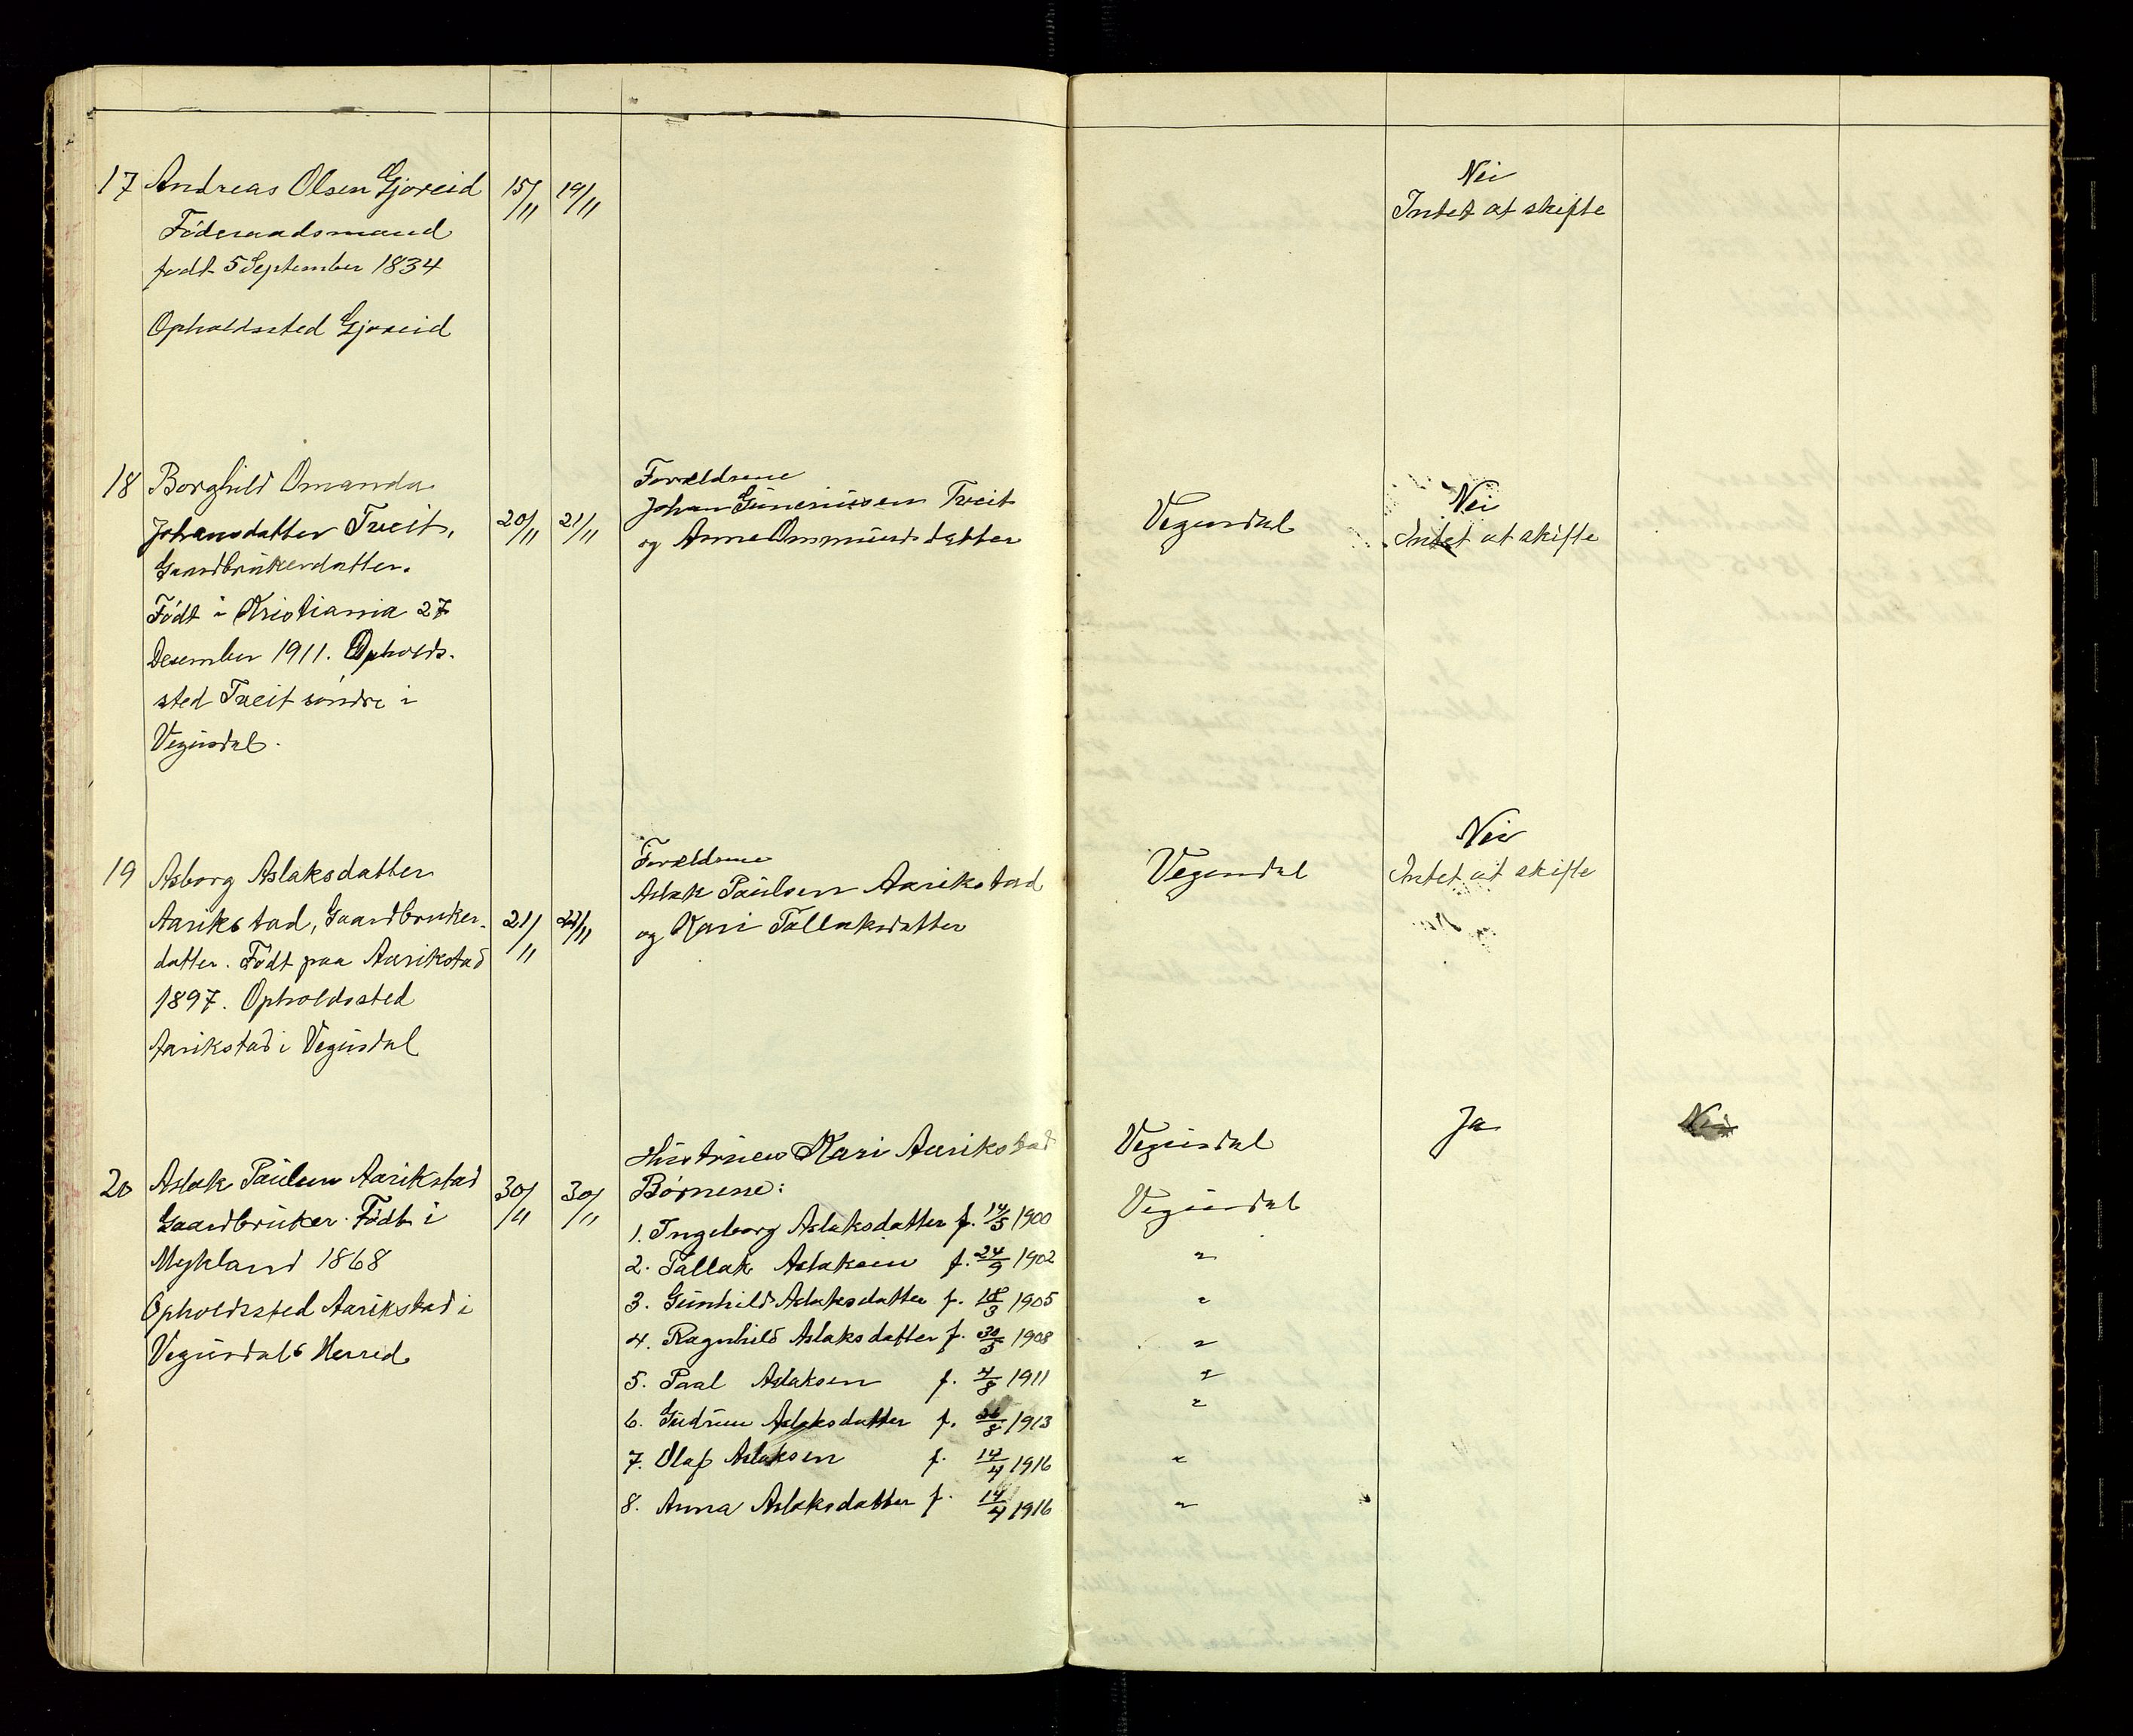 17 Andreas Olsen Gjoreid 15/11 19/11 Nei
Föderaadsmand Intet at skifte
født 5 September 1834
Opholdssted Gjoreid
18 Borghild Omanda Forældrene
Johansdatter Tveit, 20/11 21/11 Johan Gunerüssen Tveit Vegusdal Nei
og Anne Ommündsdatter Intet at skifte
Gaardbrükerdatter.
Födt i Kristiania 27
Desember 1911. Opholds-
sted Tveit söndre i
Vegüsdal.
19 Asborg Aslaksdatter Forældrene Nei
Aslak Paülsen Aarikstad Vegusdal Intet at skifte
Aarikstad, Gaardbruker- 21/11 22/11 og Kari Tallaksdatter
datter. Födt paa Aarikstad
1897. Opholdssted
Aarikstad i Vegüsdal
Hüstrüen Kari Aarikstad Vegüsdal Ja Nei
20 Aslak Paülsen Aarikstad 30/11 30/11 Børnene: Vegüsdal
Gaardbrüker. Födt i 1. Ingeborg Aslaksdatter f. 14/5 1900
Mykland 1868 2. Tallak Aslaksen f. 24/9 1902 "
Opholdssted Aarikstad i 3. Günhild Aslaksdatter f. 18/3 1905 "
Vegüsdals Herred 4. Ragnhild Aslaksdatter f. 30/5 1908 "
5. Paal Aslaksen f. 4/8 1911 "
6. Güdrün Aslaksdatter f. 26/8 1913 "
7. Olaf Aslaksen f. 14/4 1916 "
8. Anna Aslaksdatter f. 14/4 1916 "